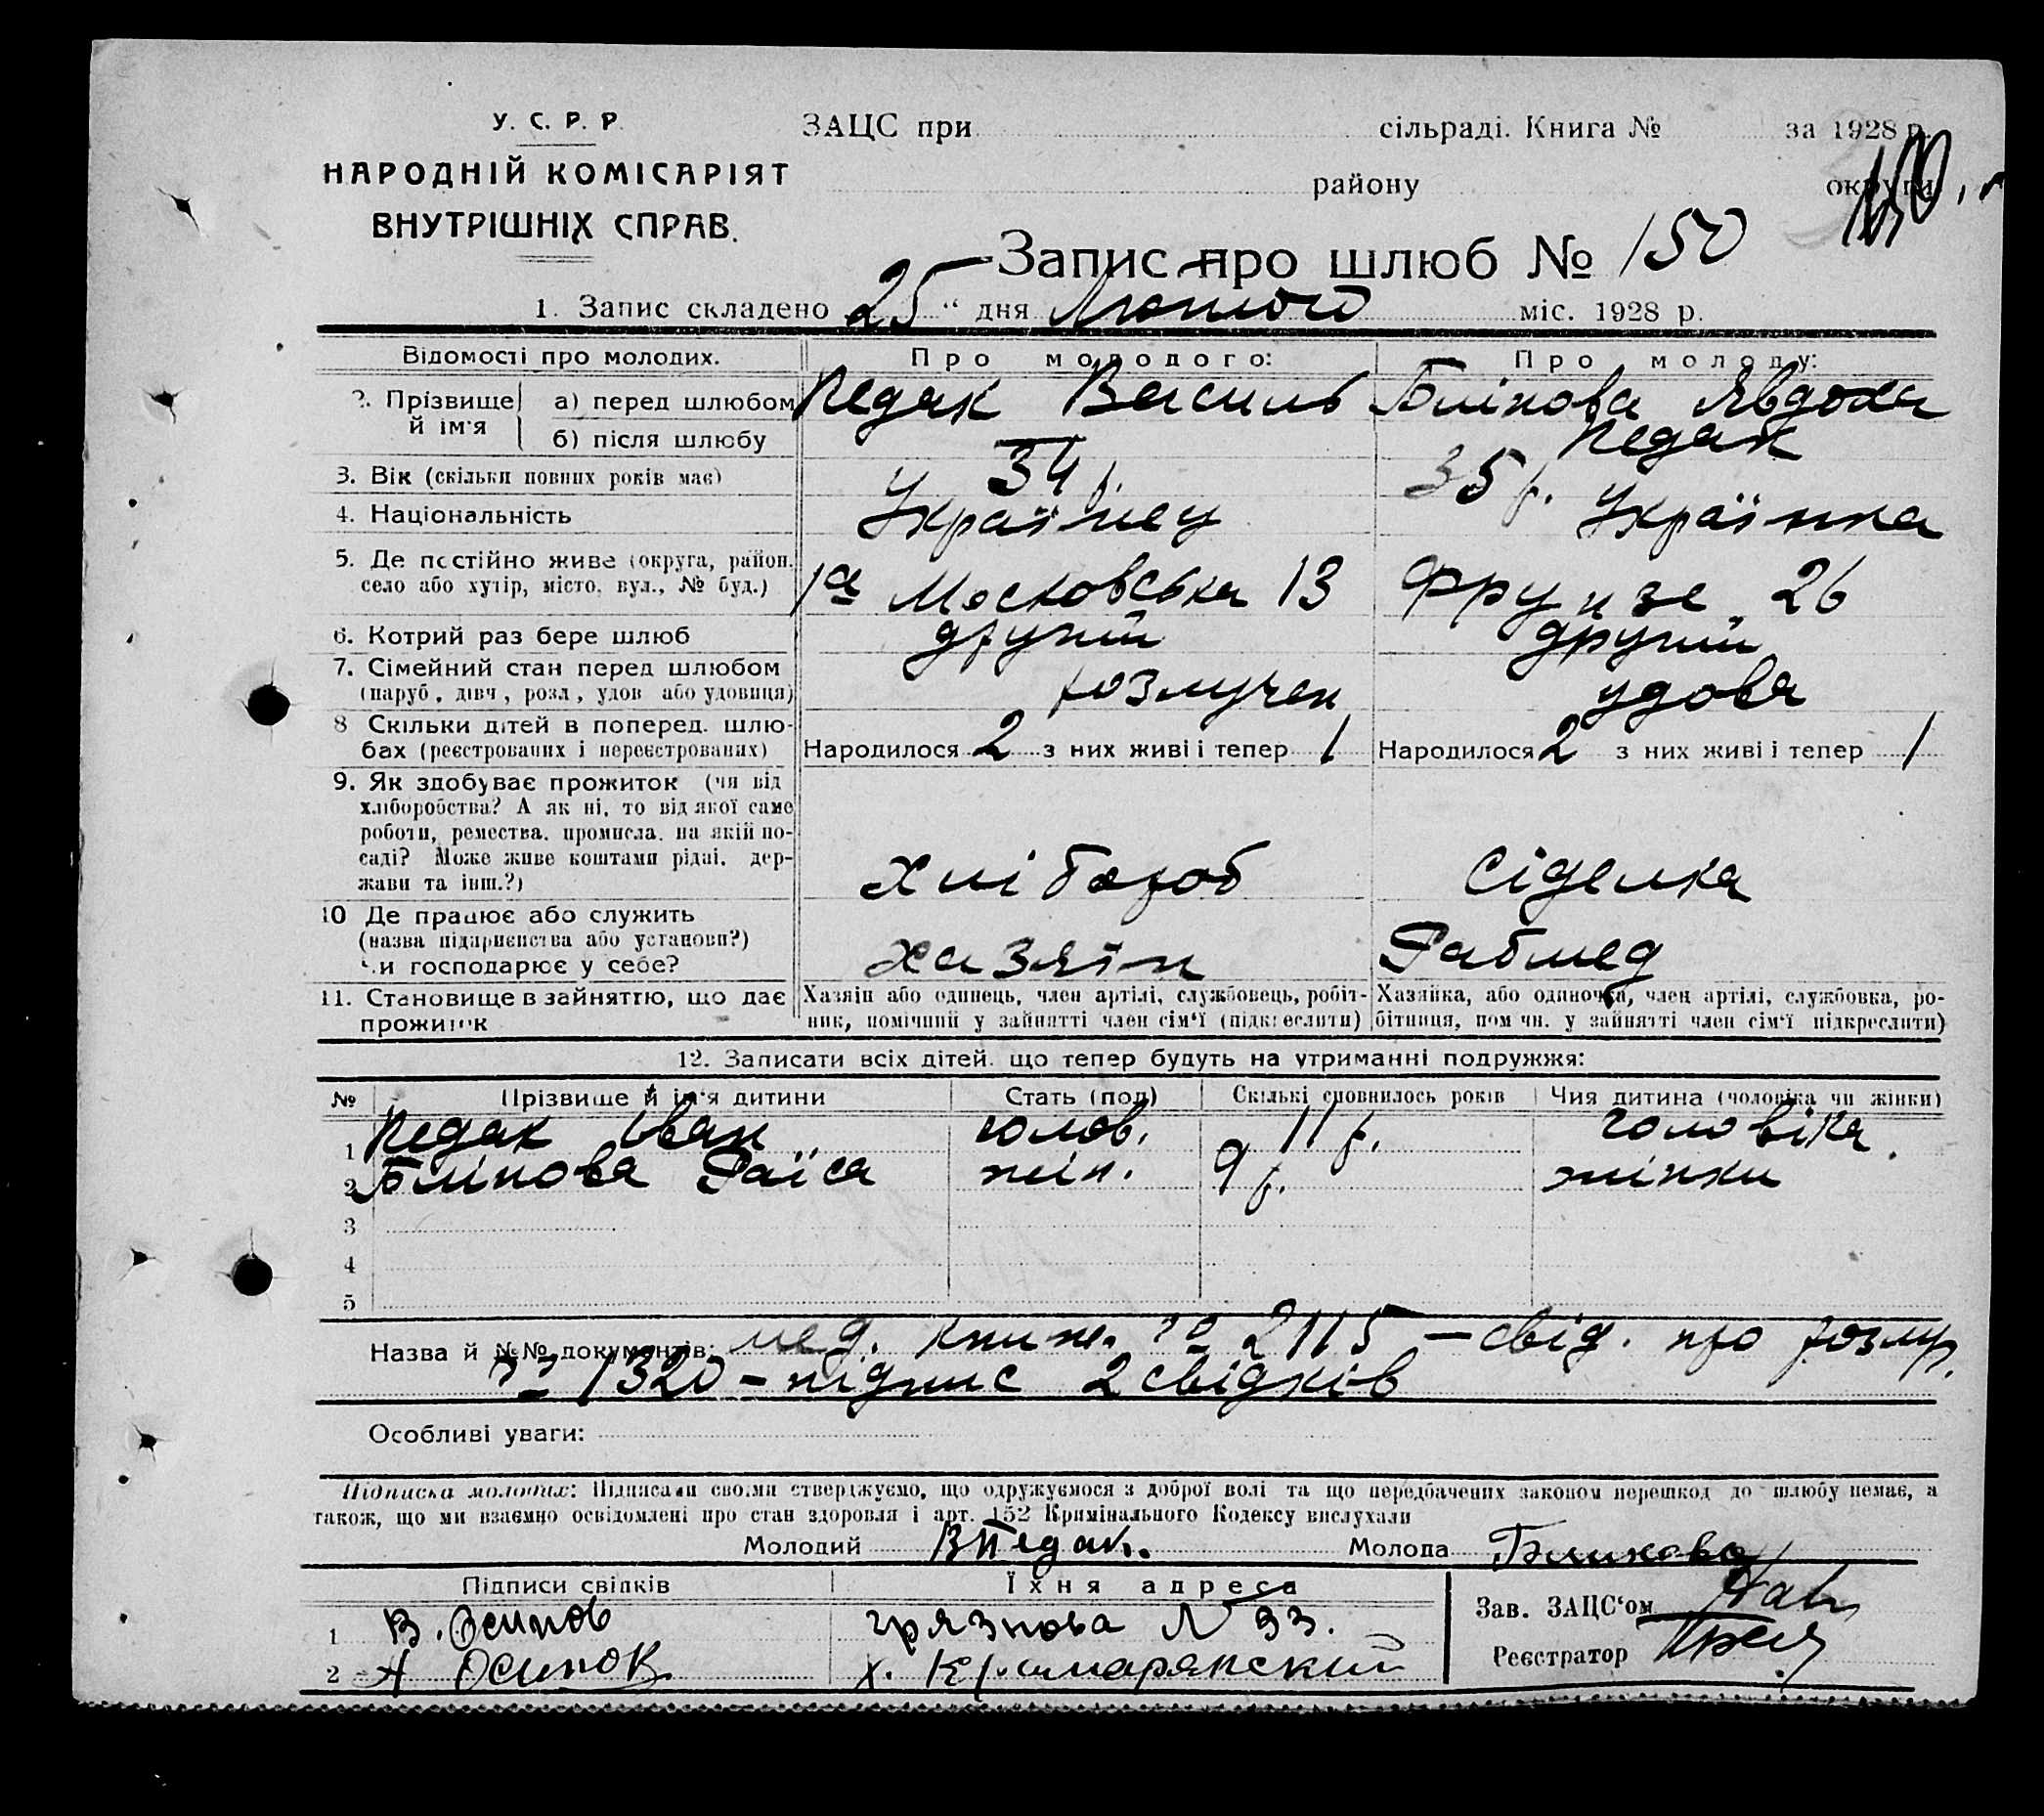 У. С. Р. Р.
НАРОДНІЙ КОМІСАРІЯТ
ВНУТРІШНІХ СПРАВ.
ЗАЦС при сільраді. Книга № за 1928 р.
району округи
Запис про шлюб № 150
1. Запис складено 25 “ дня Лютого міс. 1928 р.
Відомості про молодих. Про молодого: Про молоду:
2. Прізвище й ім'я а) перед шлюбом Педак Василь Блінова Явдоха
б) після шлюбу — Педак
3. Вік (скільки повних років має) 34 р. 35 р.
4. Національність Українец Українка
5. Де постійно живе (округа, район, 1а Московська 13 Фрунзе 26
село або хутір, місто, вул., № буд.)
6. Котрий раз бере шлюб другий другий
7. Сімейний стан перед шлюбом
(паруб, дівч, розл, удов або удовиця) розлучен удова
8 Скільки дітей в поперед. шлю-
бах (реєстрованих і нереєстрованих) Народилося 2 з них живі і тепер 1 Народилося 2 з них живі і тепер 1
9. Як здобуває прожиток (чи від
хліборобства? А як ні, то від якої саме
роботи, ремества, промисла, на якій по-
саді? Може живе коштами рідні, дер- Хлібороб Сіделка
жави та інш.?)
10 Де працює або служить
(назва підприємства або установи?) Хазяїн Рабмед
чи господарює у себе?
11. Становище в зайняттю, що дає Хазяїн або одинець, член артілі, службовець, робіт- Хазяйка, або одиночка, член артілі, службовка, ро-
прожиток ник, помічний у зайнятті член сім‘ї (підкреслити) бітниця, пом чн. у зайнятті член сім‘ї підкреслити)
12. Записати всіх дітей. що тепер будуть на утриманні подружжя:
№ Прізвище й ім‘я дитини Стать (пол) Скількі сповнилось років Чия дитина (чоловіка чи жінки)
1 Педак Іван чолов. 11 р. чоловіка.
2 Блінова Раїса жін. 9 р. жінки
3
4
5
Назва й №№ документів: мед. книж. № 2115 — свід. про розлуч.
№ 1320 – підпис 2 свідків
Особливі уваги:
Підписка молодих: Підписами своїми стверджуємо, що одружуємося з доброї волі та що передбачених законом перешкод до шлюбу немає, а
також, що ми взаємно освідомлені про стан здоровля і арт. 152 Кримінального Кодексу вислухали
Молодий В Педак. Молода Блинова
Підписи свідків Їхня адреса
1 В. Осипов Грязнова N 93. Зав. ЗАЦС‘ом
2 А Осипов Реєстратор